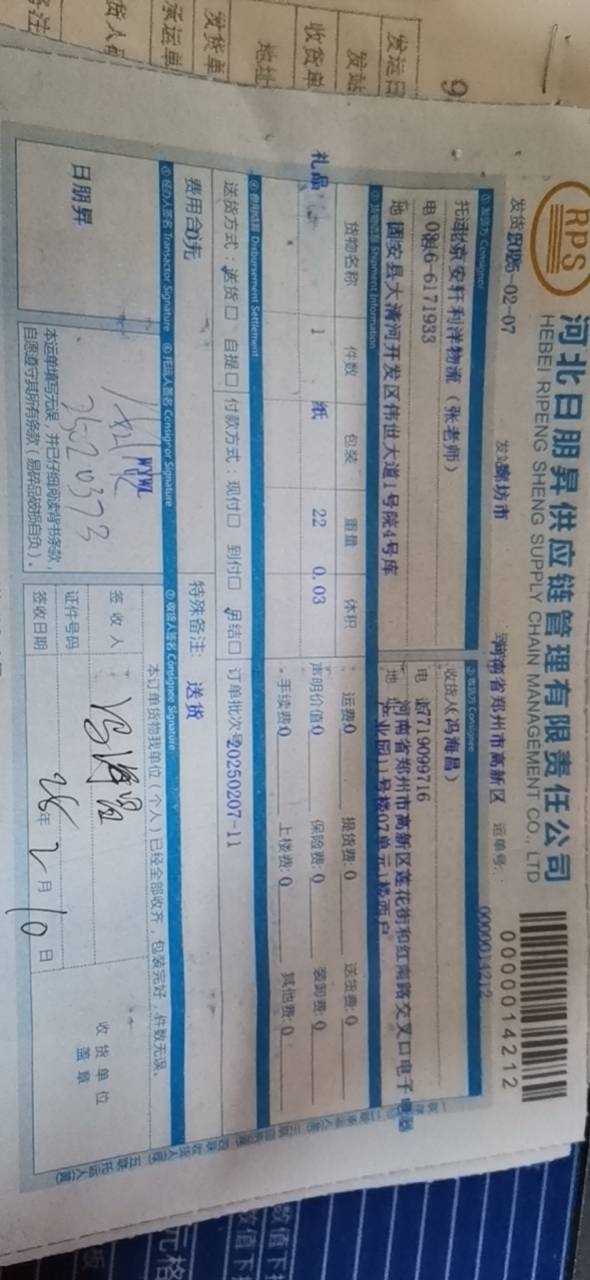 RPS
河北日朋昇供应链管理有限责任公司
HEBEI RIPENG SHENG SUPPLY CHAIN MANAGEMENT CO., LTD
0000014212
发货 2025-02-07
廊坊市
河南省郑州市高新区
运单号:
0000014212
① 发货方 Consignor
② 收货方 Consignee
北京安轩利洋物流(张老师)
收货人(冯海昌)
电 0316-6171933
电 17719099716
固安县大清河开发区伟世大道1号院4号库
河南省郑州市高新区莲花街和红南路交叉口电子电器
产业园11号楼07单元1楼西户
③ 货物信息 Shipment Information
货物名称 件数 包装 重量 体积
运费:0 提货费:0 送货费:0
礼品 1 纸 22 0.03
声明价值:0 保险费:0 装卸费:0
手续费:0 上楼费:0 其他费:0
④ 费用结算 Disbursement Settlement
送货方式: 送货□ 自提□ 付款方式: 现付□ 到付□ 月结□
订单批次号 20250207-11
费用合 0元
特殊备注: 送货
⑤ 经办人签名 Transactor Signature
⑥ 托运人签名 Consignor Signature
⑦ 收货人签名 Consignee Signature
日朋昇
本订单货物我单位(个人)已经全部收齐,包装完好,件数无误。
签收人 冯海昌
收货单位
盖章
证件号码
本运单填写无误,并已仔细阅读背书条款,
自愿遵守其所有条款(易碎品破损自负)。
签收日期 25年 2月 10日
发运日
发站
收货单
地址
发货单
承运单